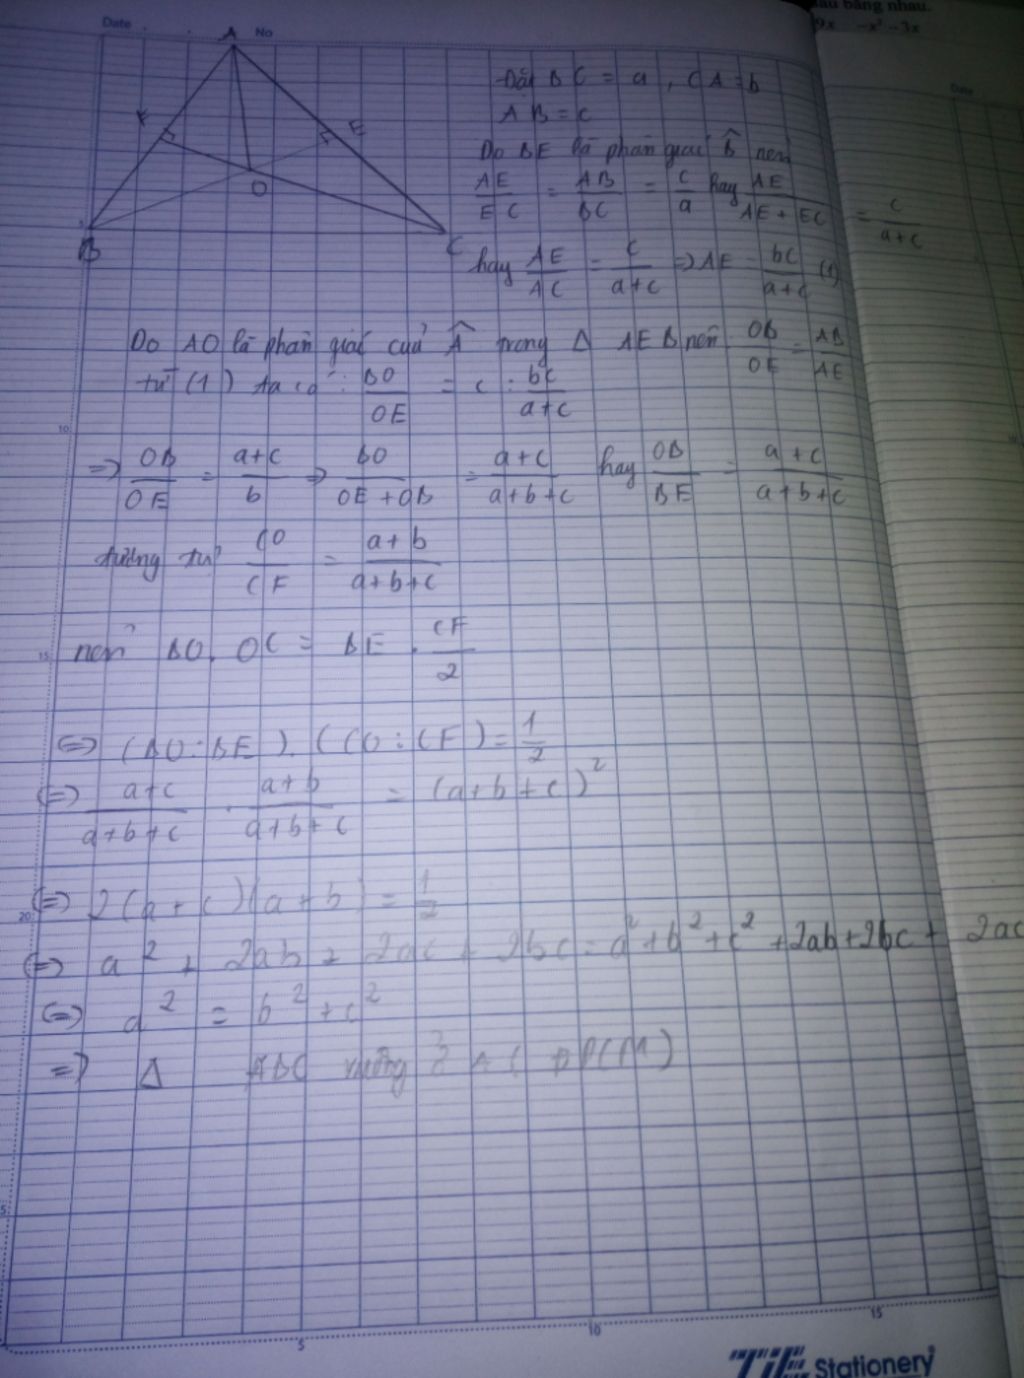 âu bằng nhau.
9x -x² - 3x
Date No
Date
A
F E
O
B C
Đặt BC = a, CA = b
AB = c
Do BE là phân giác B̂ nên
AE/EC = AB/BC = c/a hay AE/AE+EC = c/a+c
hay AE/AC = c/a+c => AE = bc/a+c (1)
Do AO là phân giác của Â trong Δ AEB nên OB/OE = AB/AE
từ (1) ta có: BO/OE = c : bc/a+c
10
=> OB/OE = a+c/b => BO/OE+OB = a+c/a+b+c hay OB/BE = a+c/a+b+c
tương tự CO/CF = a+b/a+b+c
15
nên BO. OC = BE . CF/2
<=> (BO:BE). (CO:CF) = 1/2
<=> a+c/a+b+c . a+b/a+b+c = (a+b+c)²
20
<=> 2(a+c)(a+b) = 1/2
<=> a² + 2ab + 2ac + 2bc = a²+b²+c²+2ab+2bc+ 2ac
<=> a² = b² + c²
=> Δ ABC vuông ở A (ĐPCM)
5
5 10 15
TiE Stationery